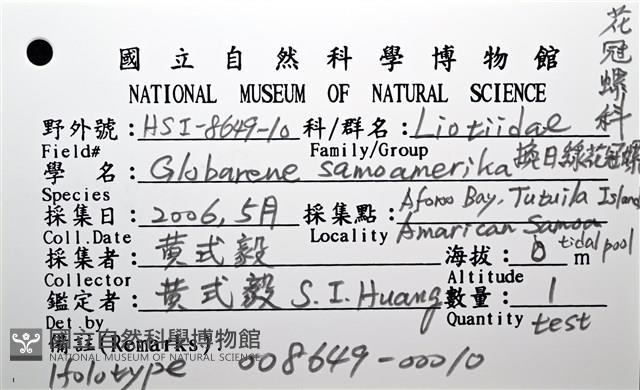 國立自然科學博物館
NATIONAL MUSEUM OF NATURAL SCIENCE
花冠螺科
野外號：HSI-8649-10 科/群名：Liotiidae
Field# Family/Group
學 名：Globarene samoamerika 換日線花冠螺
Species
採集日：2006, 5月 採集點：Afono Bay, Tutuila Island
Coll.Date Locality Amarican Samoa
採集者：黄式毅 海拔：0 m tidal pool
Collector Altitude
鑑定者：黄式毅 S. I. Huang 數量：1
Det.by Quantity test
備註(Remarks)
國立自然科學博物館
NATIONAL MUSEUM OF NATURAL SCIENCE
Holotype 008649-00010